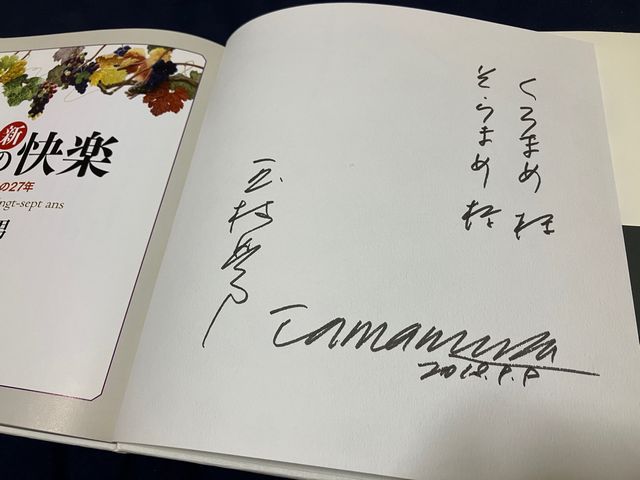 新
の快楽
の27年
ngt-sept ans
男
くろまめ 様
そらまめ 様
玉村豊男
Tamamura
2018.8.8